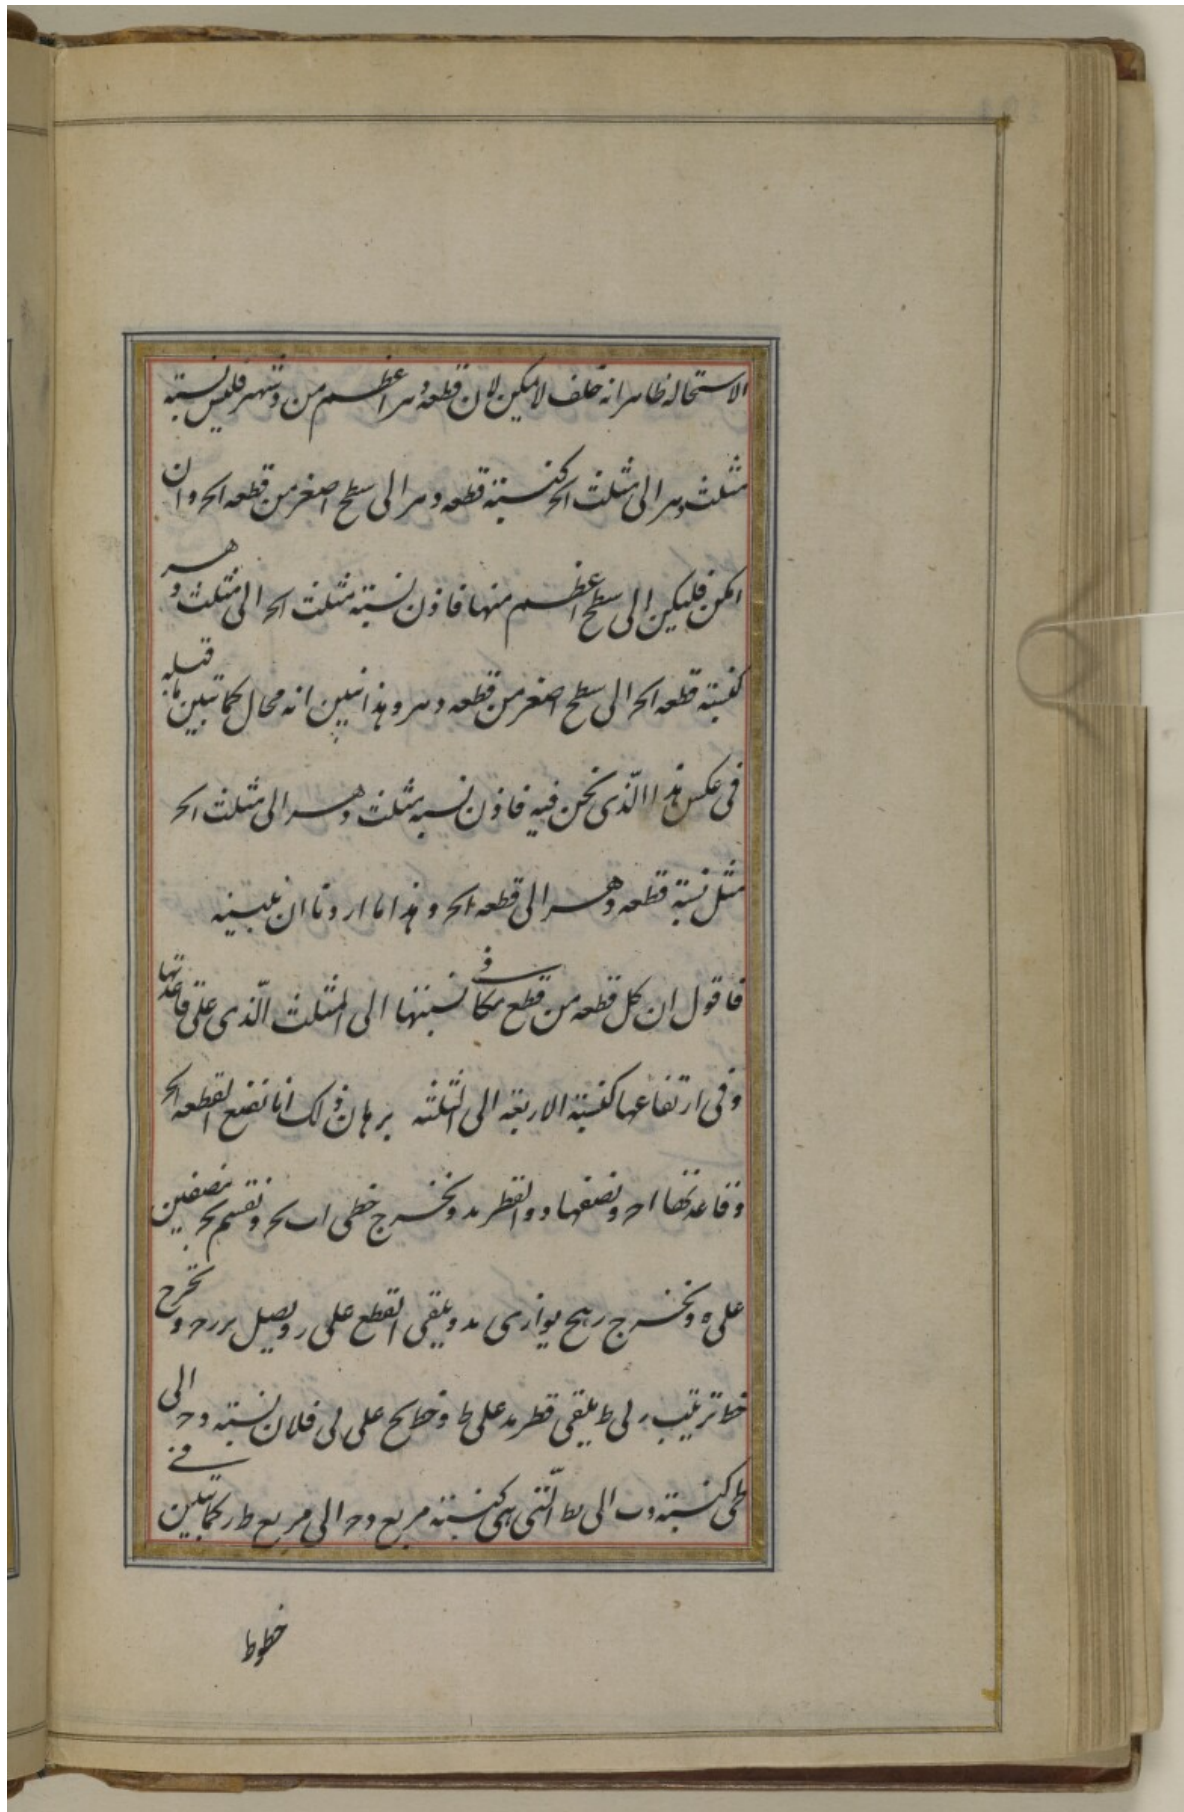 الاستحاله ظاهر انه خلف لا يمكن لان قطعه وهر اعظم من وشهر فليس نسبة
مثلث وهر الى مثلث احر كنسبة قطعه وهر الى سطح اصغر من قطعه احر وان
امكن فليكن الى سطح اعظم منها فاذن نسبة مثلث احر الى مثلث وهر
كنسبة قطعه احر الى سطح اصغر من قطعه وهر وهذا نبين انه محال كما تبين قبله
فى عكس هذا الذى نحن فيه فاذن نسبه مثلث وهر الى مثلث احر
مثل نسبة قطعه وهر الى قطعه احر وهذا ما اردنا ان نبينه
فاقول ان كل قطعه من قطع مكافى نسبتها الى المثلث الذى على قاعدتها
وفى ارتفاعها كنسبة الاربعه الى الثلثه برهان ذلك انا نضع القطعه احر
وقاعدتها اح ونصفها د والقطر ىد ونخرج خطى اب ىحر ونقسم ىحر بنصفين
على ه ونخرج رهح يوازى ىد ويلقى القطع على ر ويصل ىر رح ونخرج
خط ترتيب ر لى ط يلقى قطر ىد على ط وخط ىح على لى فلان نسبة دح الى
طى كنسبة دب الى ىط التى هى كنسبة مربع دح الى مربع طر كما تبين فى
خطوط